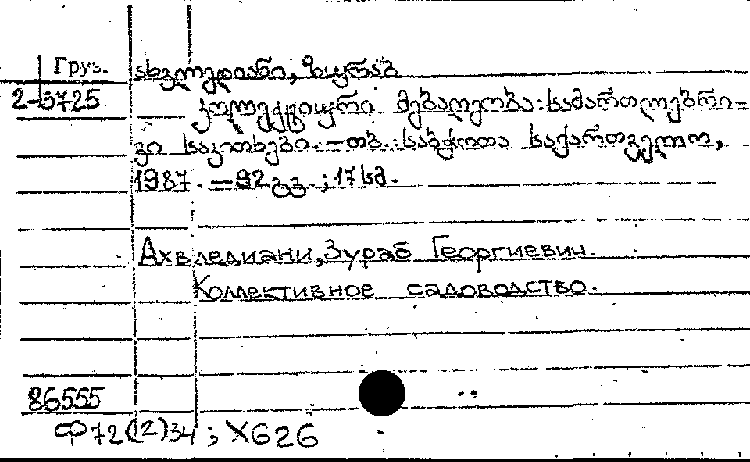 Груз.
ახვლედიანი, ზურაბ
2-3725
კოლექტიური მებაღეობა: სამართლებრი-
ვი საკითხები. — თბ.: საბჭოთა საქართველო,
1987. — 92 გვ. ; 17 სმ.
Ахвледиани, Зураб Георгиевич.
Коллективное садоводство.
86555
Ф72(2)34 ; X626